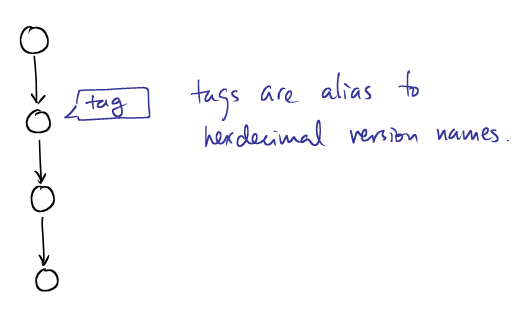 tag
tags are alias to
hexdecimal version names.